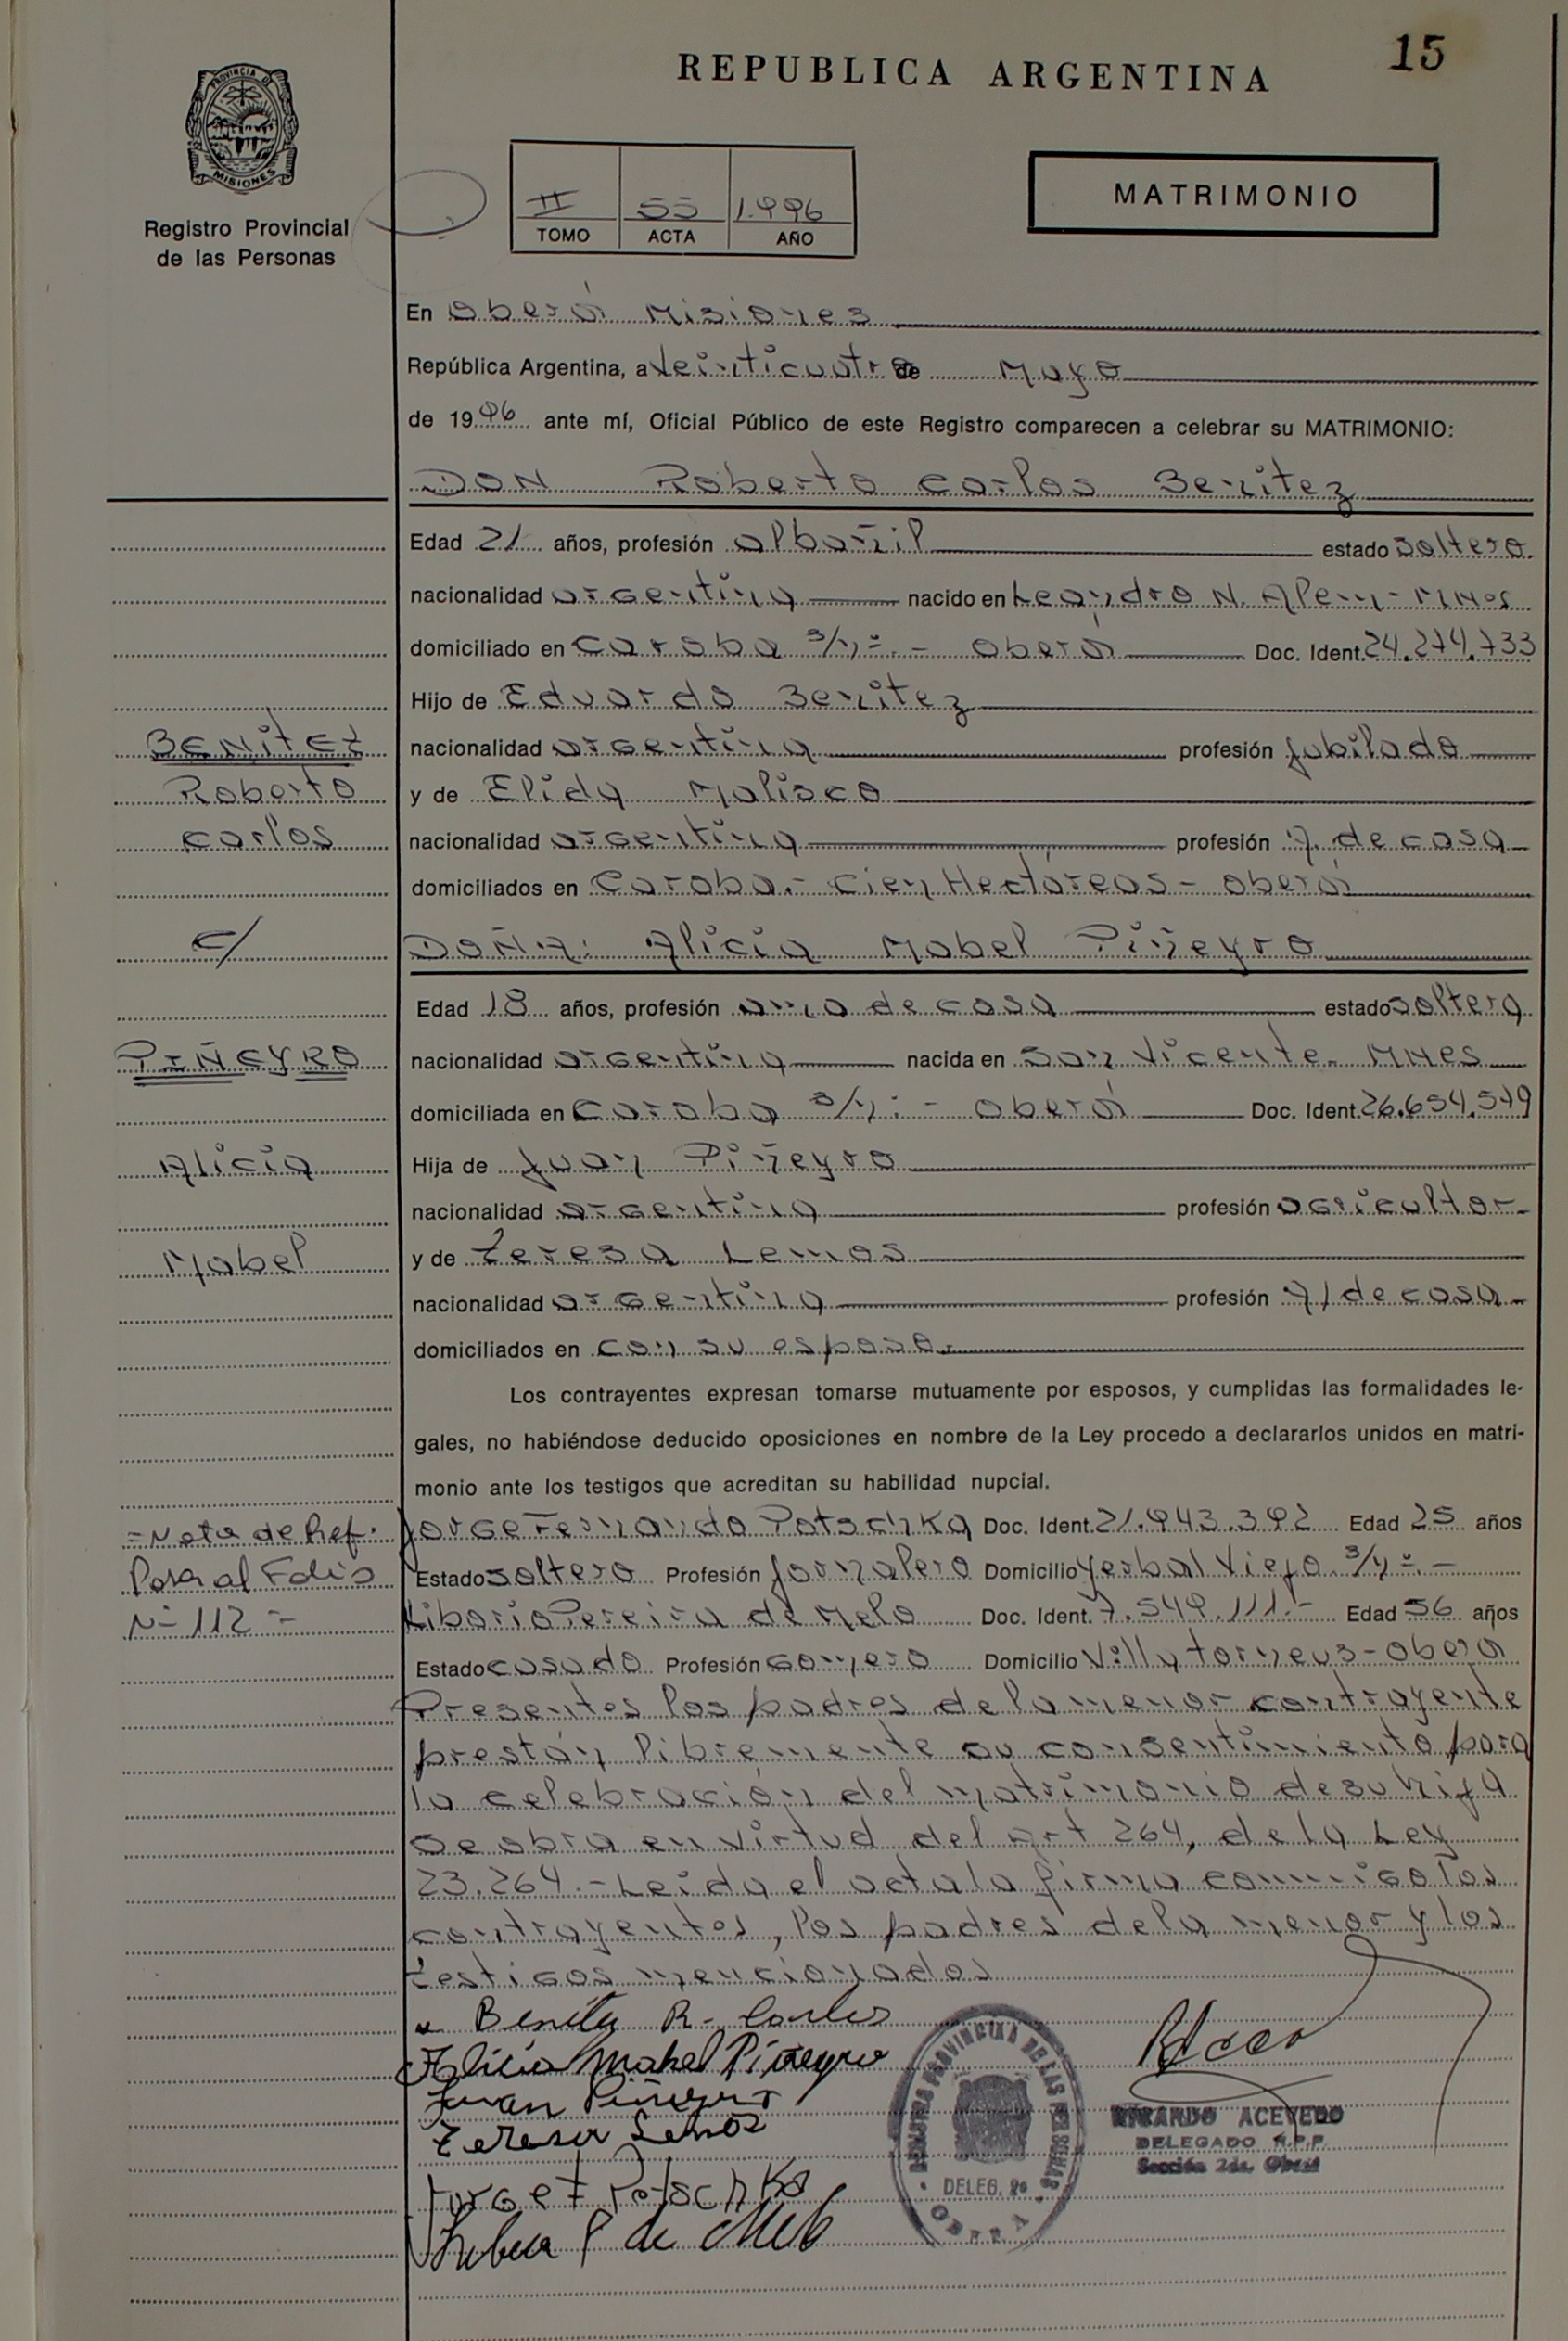 15
REPUBLICA ARGENTINA
PROVINCIA DE
MISIONES
Registro Provincial
de las Personas
II 55 1.996
TOMO ACTA AÑO
MATRIMONIO
En Oberá Misiones
República Argentina, a Veinticuatro de Mayo
de 1996 ante mí, Oficial Público de este Registro comparecen a celebrar su MATRIMONIO:
DON Roberto Carlos Benitez
Edad 21 años, profesión albañil estado soltero.
nacionalidad argentina nacido en Leandro N. Alem-
domiciliado en Caroba s/nº.- Oberá Doc. Ident. 24.274.733
Hijo de Eduardo Benitez
nacionalidad argentina profesión jubilado
y de Elida Malisco
nacionalidad argentina profesión A. de casa
domiciliados en Caroba.- Cien Hectáreas - Oberá
DOÑA: Alicia Mabel Piñeyro
Edad 18 años, profesión ama de casa estado soltera
nacionalidad argentina nacida en San Vicente- Mnes
domiciliada en Caroba s/nº.- Oberá Doc. Ident. 26.654.579
Hija de Juan Piñeyro
nacionalidad argentina profesión agricultor
y de Teresa Lemos
nacionalidad argentina profesión A/de casa
domiciliados en con su esposo.
Los contrayentes expresan tomarse mutuamente por esposos, y cumplidas las formalidades le-
gales, no habiéndose deducido oposiciones en nombre de la Ley procedo a declararlos unidos en matri-
monio ante los testigos que acreditan su habilidad nupcial.
Jorge Fernando Potschka Doc. Ident. 21.943.392 Edad 25 años
Estado soltero Profesión Jornalero Domicilio Yerbal Viejo s/nº.-
Liborio Pereira de Melo Doc. Ident. 7.549.111.- Edad 56 años
Estado casado Profesión gomero Domicilio Villa torneus-Oberá
Presentes los padres de la menor contrayente
prestan libremente su consentimiento para
la celebración del matrimonio de su hija
se obra en virtud del art 264, de la Ley
23.264.- Leida el acta la firma conmigo los
contrayentes, los padres de la menor y los
testigos mencionados
BENITEZ
Roberto
Carlos
c/
PIÑEYRO
Alicia
Mabel
=Nota de Ref.
Pasa al Folio
Nº 112 =
Benitez R. Carlos
Alicia Mabel Piñeyro
Juan Piñeyro
Teresa Lemos
Jorge F Potschka
P de Melo
REGISTRO PROVINCIAL DE LAS PERSONAS
DELEG. 2º
OBERA
RICARDO ACEVEDO
DELEGADO R.P.P.
Sección 2da. Oberá